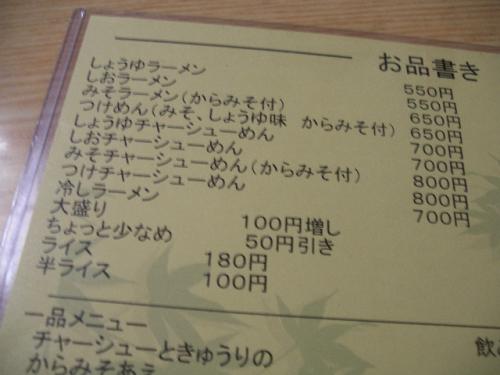 お品書き
しょうゆラーメン 550円
しおラーメン 550円
みそラーメン(からみそ付) 650円
つけめん(みそ、しょうゆ味 からみそ付) 650円
しょうゆチャーシューめん 700円
しおチャーシューめん 700円
みそチャーシューめん(からみそ付) 800円
つけチャーシューめん 800円
冷しラーメン 700円
大盛り 100円増し
ちょっと少なめ 50円引き
ライス 180円
半ライス 100円
一品メニュー
チャーシューときゅうりの
からみそあえ